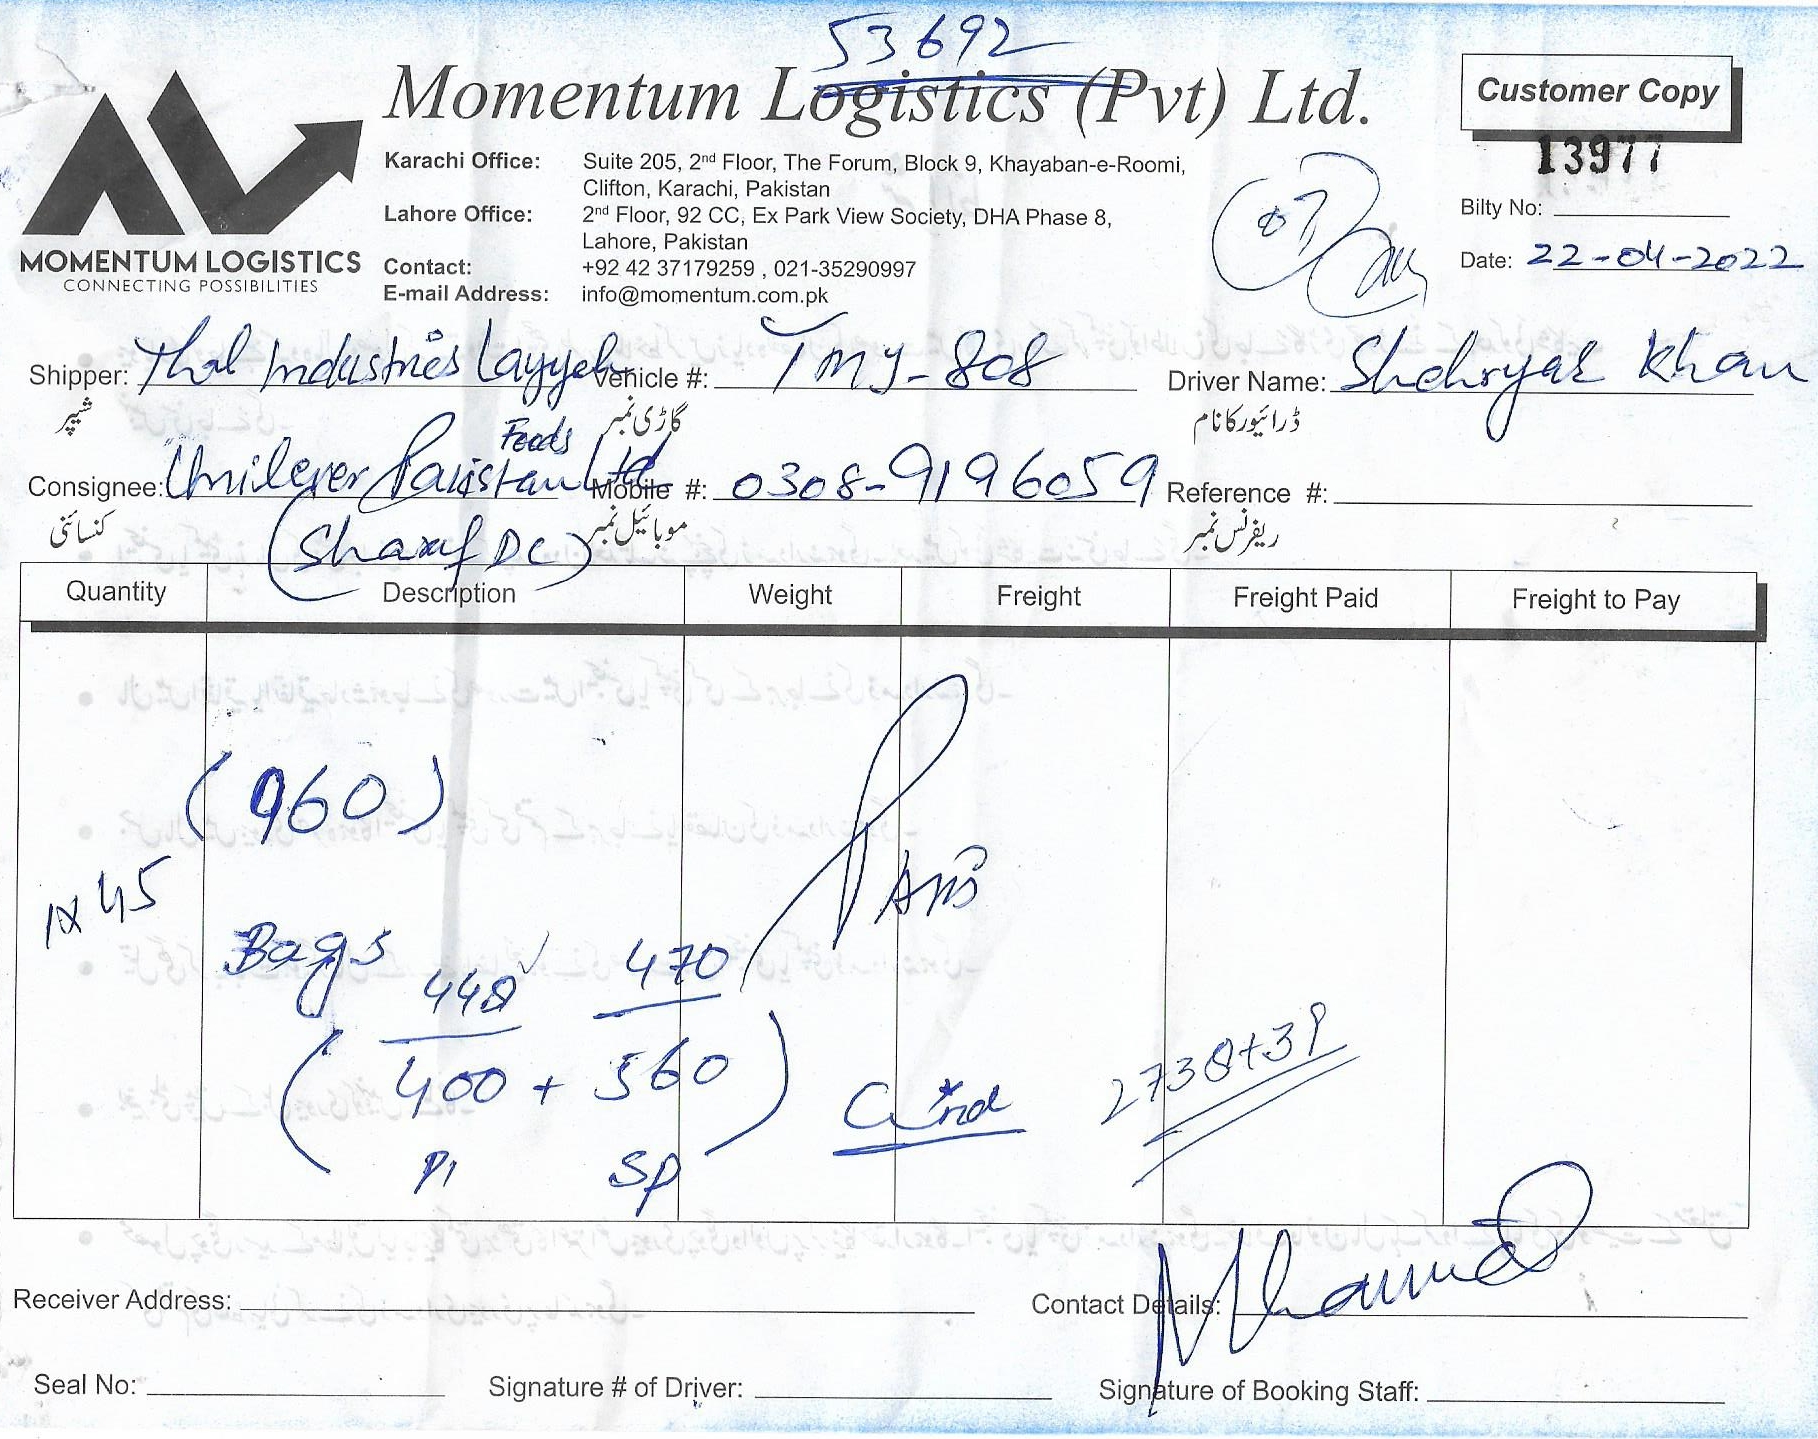 53692
Momentum Logistics (Pvt) Ltd.
Customer Copy
13977
MOMENTUM LOGISTICS
CONNECTING POSSIBILITIES
Karachi Office: Suite 205, 2nd Floor, The Forum, Block 9, Khayaban-e-Roomi,
Clifton, Karachi, Pakistan
Lahore Office: 2nd Floor, 92 CC, Ex Park View Society, DHA Phase 8,
Lahore, Pakistan
Contact: +92 42 37179259 , 021-35290997
E-mail Address: info@momentum.com.pk
Bilty No:
Date: 22-04-2022
07
Shipper: Thal Industries Layyah Vehicle #: TMJ-808 Driver Name: Shehryar Khan
شیپر گاڑی نمبر ڈرائیور کا نام
Foods
Consignee: Unilever Pakistan Ltd Mobile #: 0308-9196059 Reference #:
کنسائنی موبائیل نمبر ریفرنس نمبر
(Sharaf DC)
Quantity Description Weight Freight Freight Paid Freight to Pay
(960)
1x45
Bags 448 470
(400 + 560)
2738+39
P1 SP
Receiver Address: Contact Details:
Seal No: Signature # of Driver: Signature of Booking Staff: